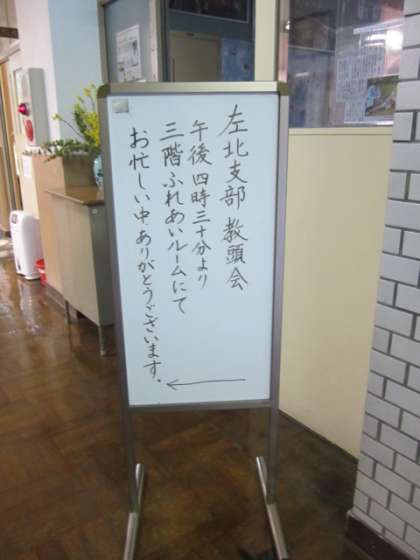 左北支部 教頭会
午後四時三十分より
三階ふれあいルームにて
お忙しい中、ありがとうございます。